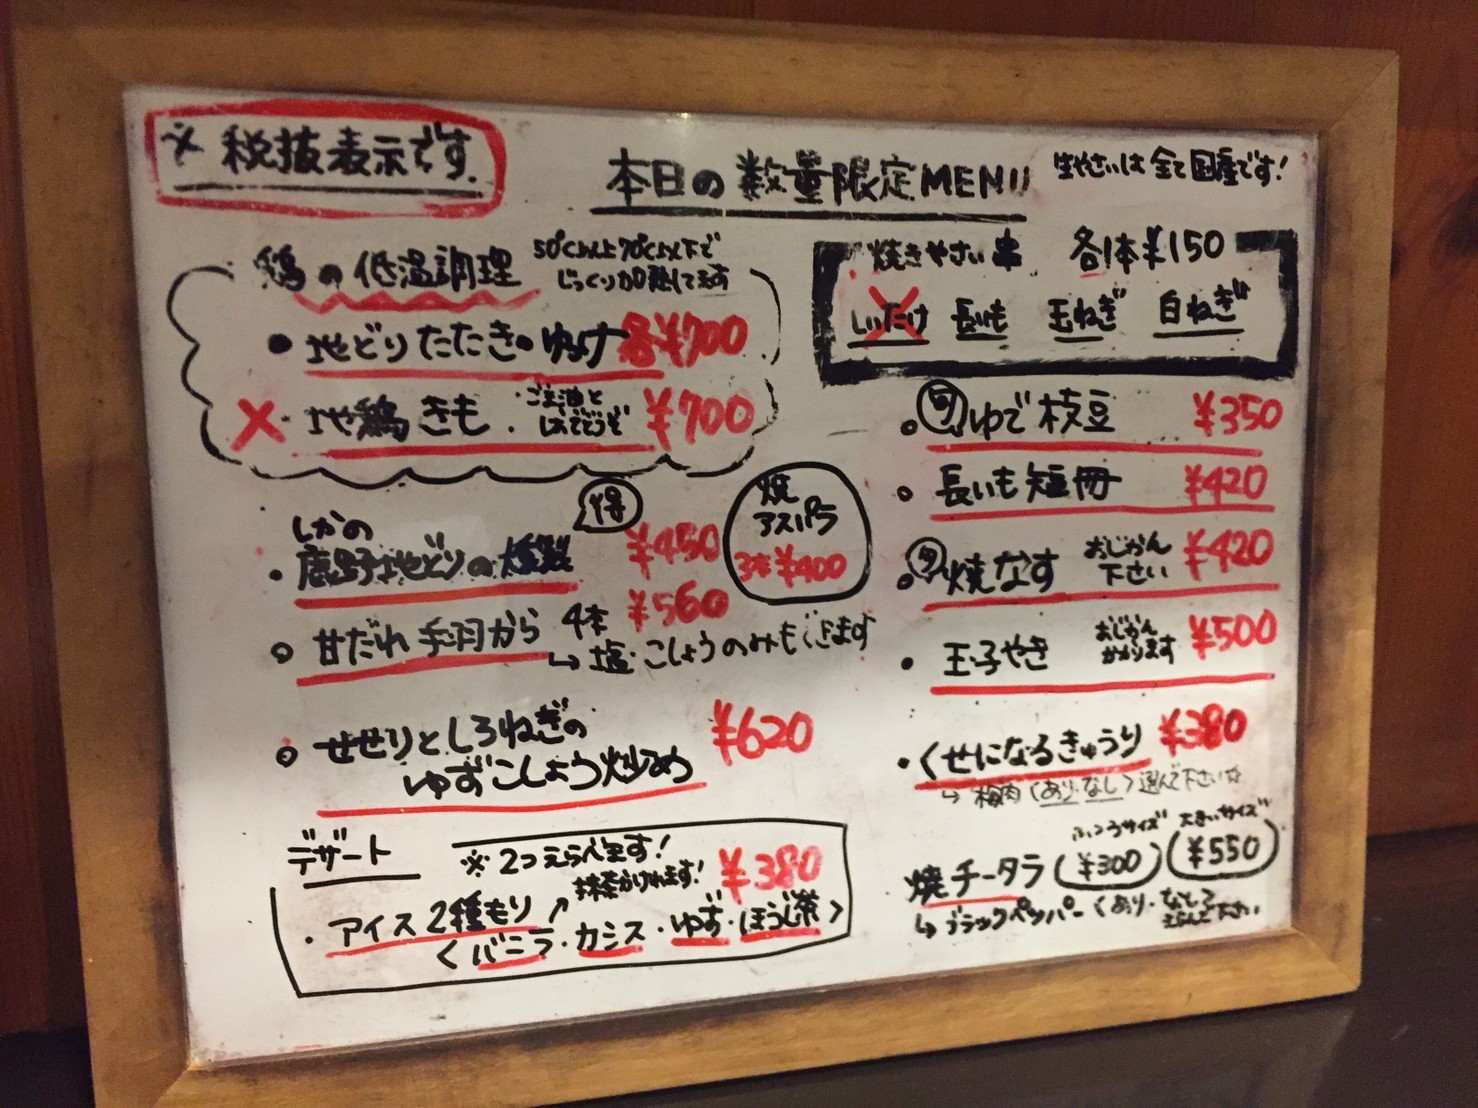 ※税抜表示です。
本日の数量限定MENU
生やさいは全て国産です!
鶏の低温調理
50℃以上70℃以下で
じっくり加熱してます
・地どりたたき・ゆっけ 各¥700
×・地鶏きも・ ¥700
得
しかの
・鹿野地どりの燻製 ¥450
・甘だれ手羽から 4本 ¥560
↳塩・こしょうのみもできます
焼
アスパラ
3本¥400
・せせりとしろねぎの
ゆずこしょう炒め ¥620
デザート
※2つえらべます!
抹茶かけれます!
・アイス2種もり ¥380
<バニラ・カシス・ゆず・ほうじ茶>
焼きやさい串 各1本¥150
しいたけ 長いも 玉ねぎ 白ねぎ
・旬 ゆで枝豆 ¥350
・長いも短冊 ¥420
・旬 焼なす おじかん
下さい ¥420
・玉子やき おじかん
かかります ¥500
・くせになるきゅうり ¥380
↳梅肉(あり・なし)選んで下さい☆
ふつうサイズ 大きいサイズ
焼チータラ (¥300) (¥550)
↳ブラックペッパー<あり・なしで
えらんで下さい